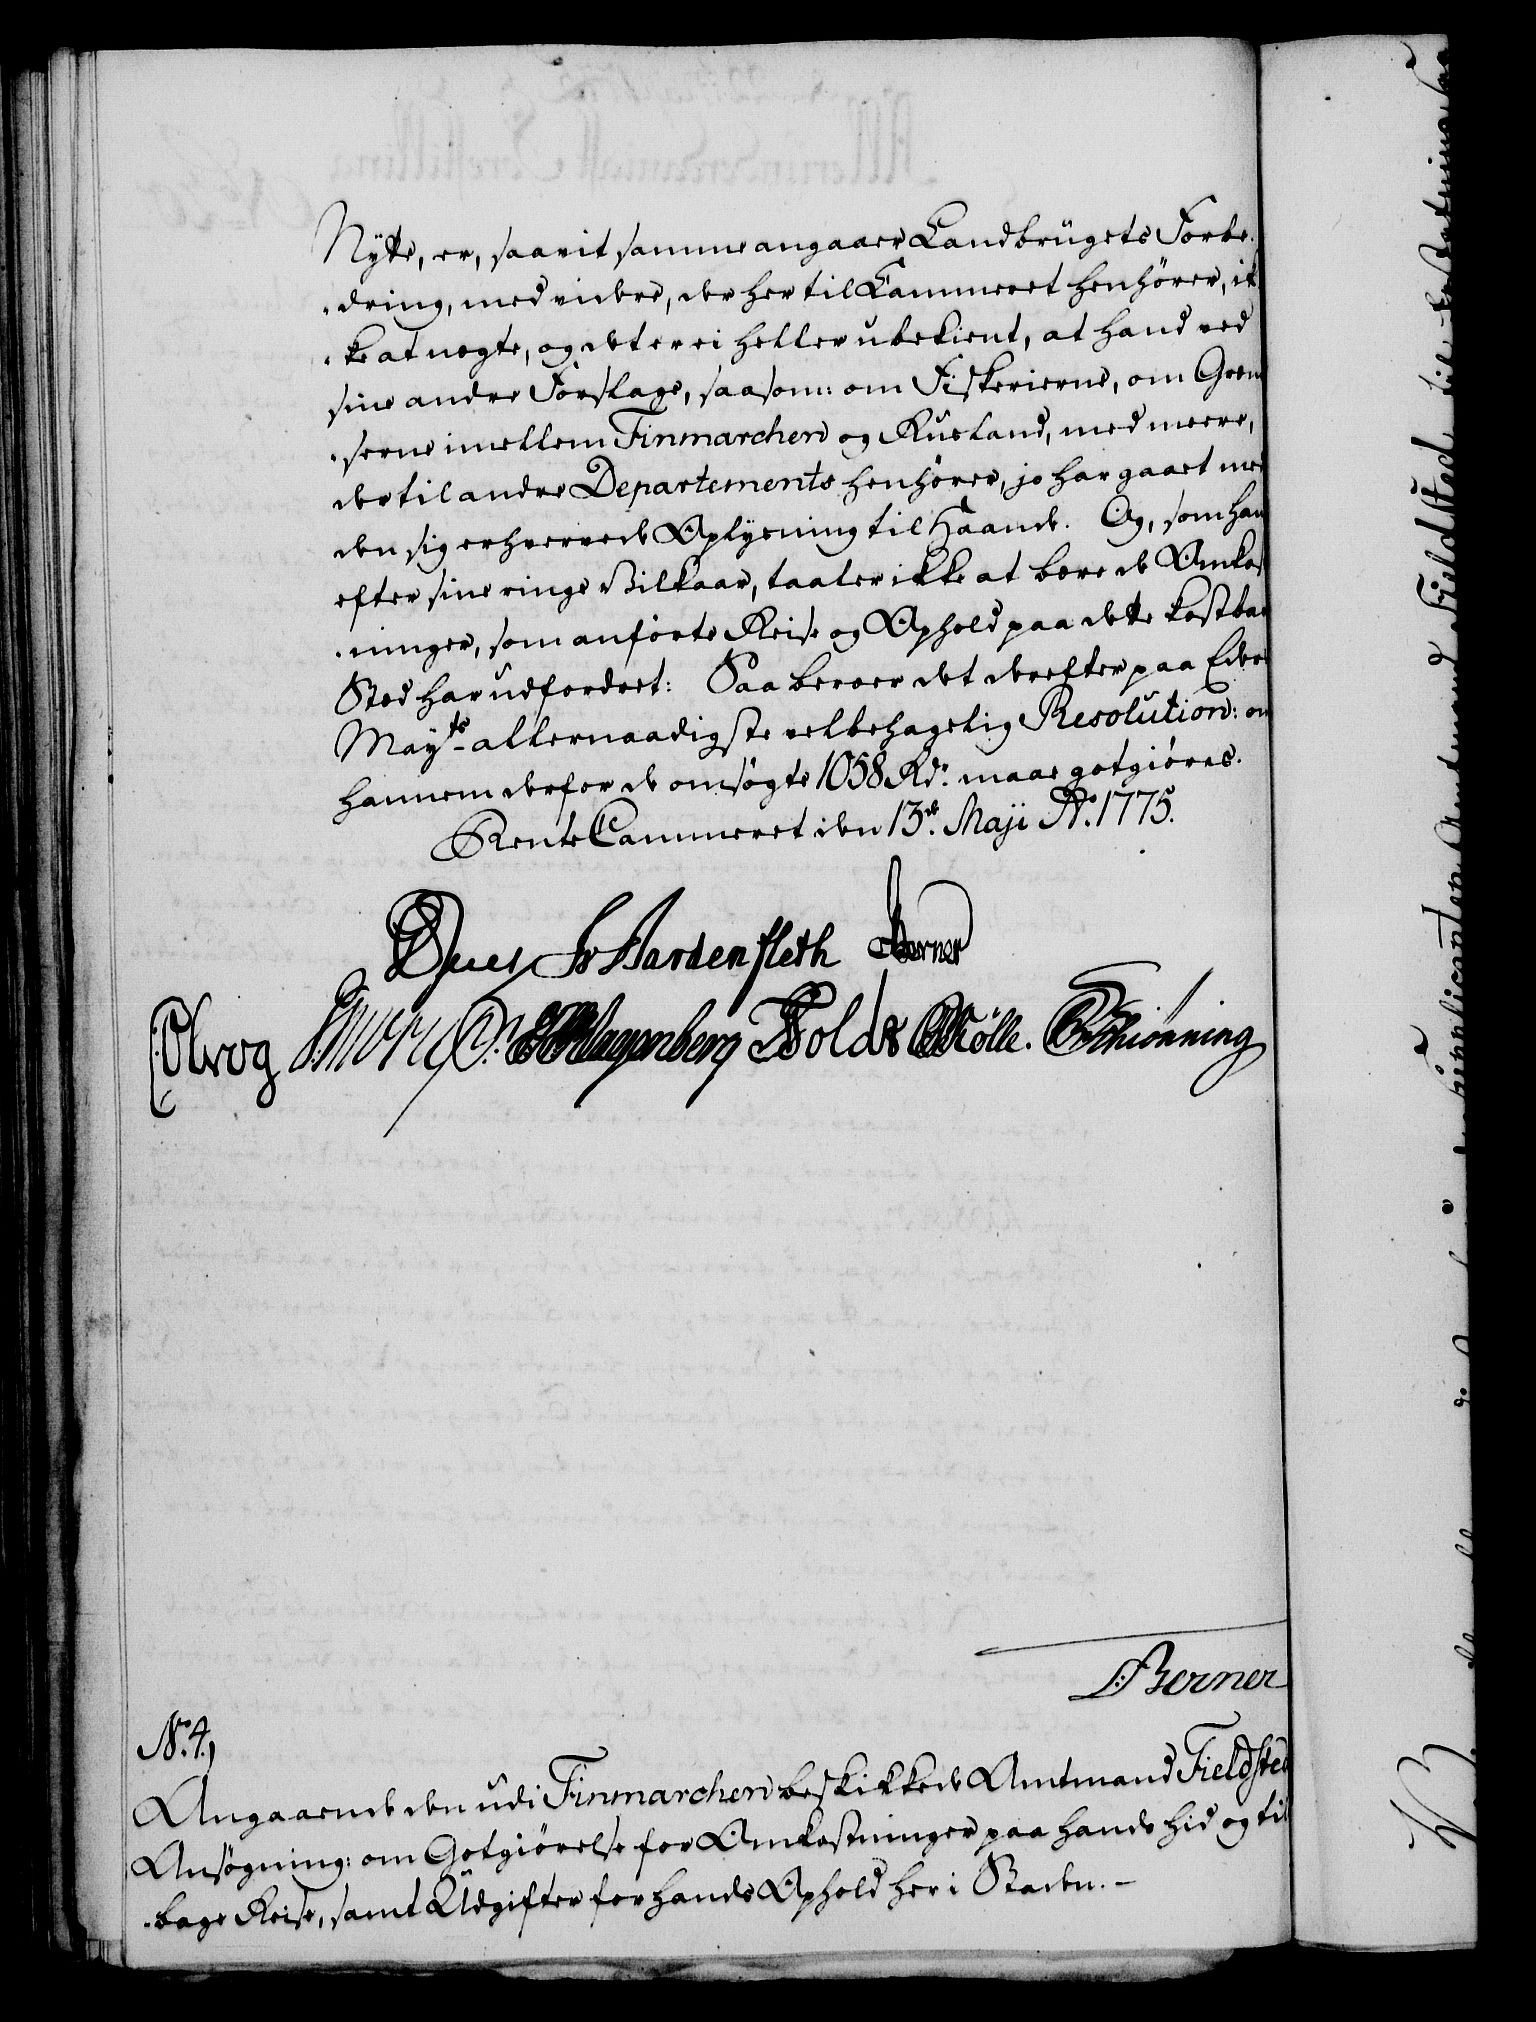 Nytte, er, saavit samme angaaer Landbrugets Forbe-
dring, med videre, der her til Kammeret henhører, ik-
ke at negte, og det er ei heller ubekient, at hand ved
sine andre Forslage, saasom: om Fiskerierne, om Græn-
serne imellem Finmarchen og Rusland, med meere,
der til andre Departements henhører, jo har gaaet med
den sig erhvervede Oplysning til Haande. Og, som han
efter sine ringe Vilkaar, taaler ikke at bære de Omkost-
ninger, som anførte Reise og Ophold paa dette kostbare
Sted har udfordret: Saa beroer det derefter paa Eders
Mayts allernaadigste velbehagelig Resolution: om
hannem derfor de omsøgte 1058 Rd. maae gotgiøres.
RenteCammeret den 13de Maji Ao. 1775.
Juel Fr Hardenfleth Berner
Olrog Wagenberg Tolds Mölle. Schiønning
Berner
No. 4,
Angaaende den udi Finmarchen beskikkede Amtmand Fieldsted
Ansøgning: om Gotgiørelse for Omkostninger paa hands hid og til-
bage Reise, samt Udgifter for hands Ophold her i Staden. -
Supplicanten Amtmand Fieldsted til